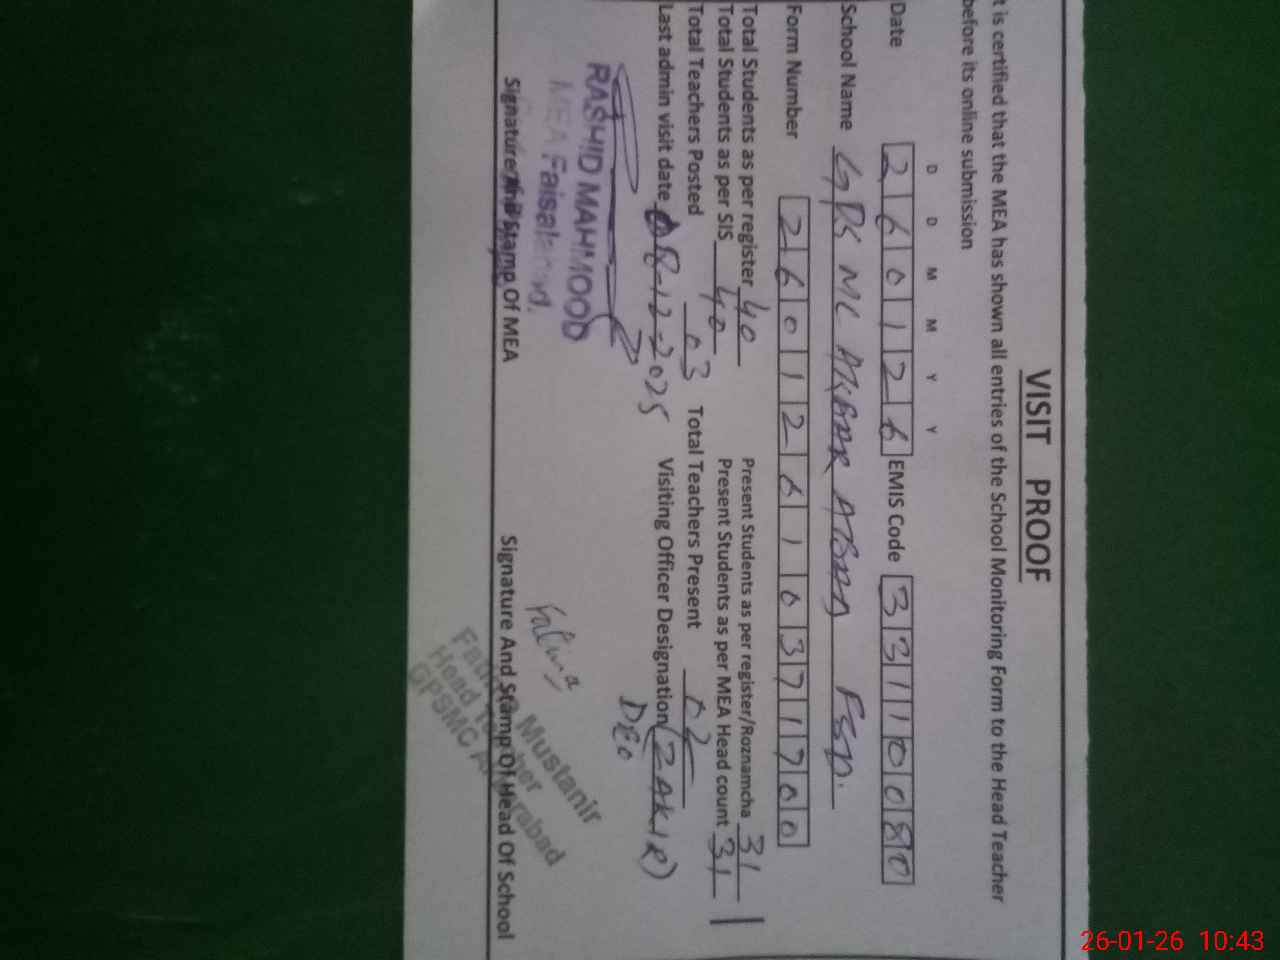 VISIT PROOF
t is certified that the MEA has shown all entries of the School Monitoring Form to the Head Teacher
before its online submission
D D M M Y Y
Date 260126 EMIS Code 33110080
School Name GPS MC AKBAR ABAD FSD.
Form Number 2601261037100
Total Students as per register 40 Present Students as per register/Roznamcha 31
Total Students as per SIS 40 Present Students as per MEA Head count 31
Total Teachers Posted 03 Total Teachers Present 02
Last admin visit date 08-12-2025 Visiting Officer Designation (ZAKIR)
DEO
RASHID MAHMOOD
MEA Faisalabad.
Signature And Stamp Of MEA
Fatima
Fatima Mustanir
Head Teacher
GPSMC
Signature And Stamp Of Head Of School
26-01-26 10:43